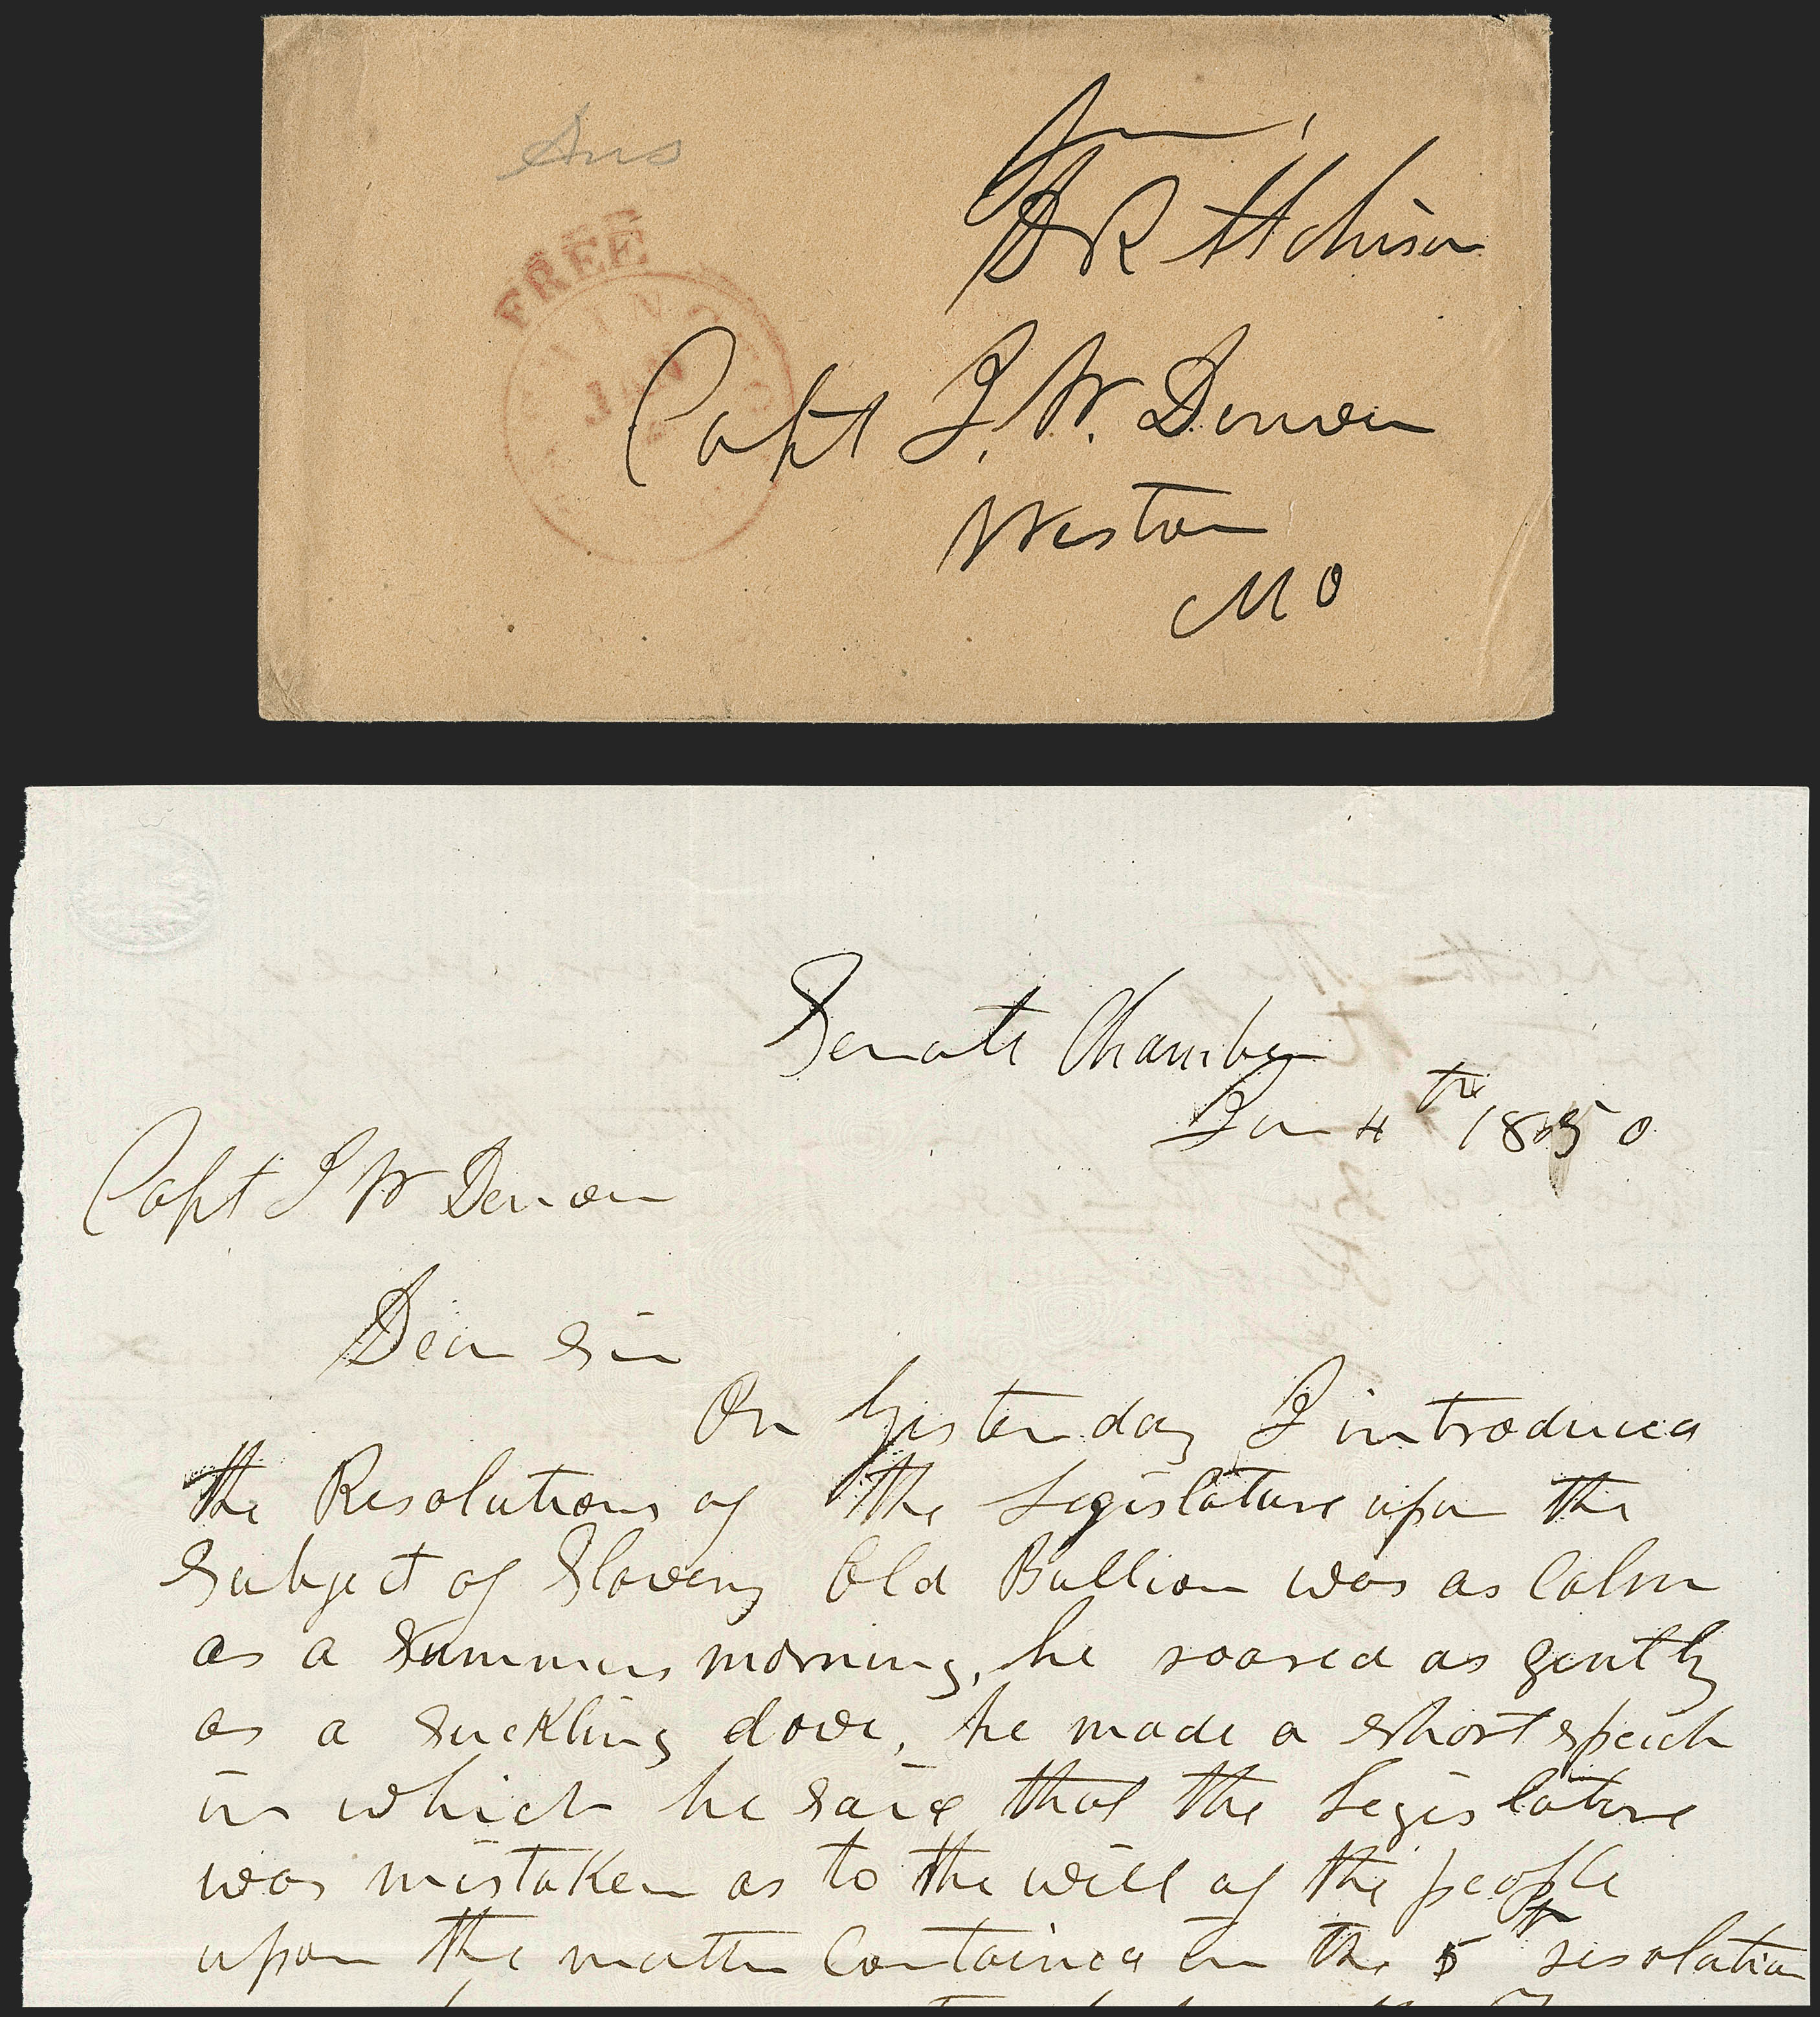 Ans
Free
D R Atchison
FREE
WASHINGTON
JAN
Capt J. W. Denver
Weston
MO
Senate Chamber
Jan 4th 1850
Capt J W Denver
Dear Sir
On Yesterday I introduced
the Resolutions of the Legislature upon the
Subject of Slavery Old Bullion was as Calm
as a Summers morning, he roared as gently
as a suckling dove, he made a short speech
in which he said that the Legislature
was mistaken as to the will of the people
upon the matter Contained in the 5th resolution